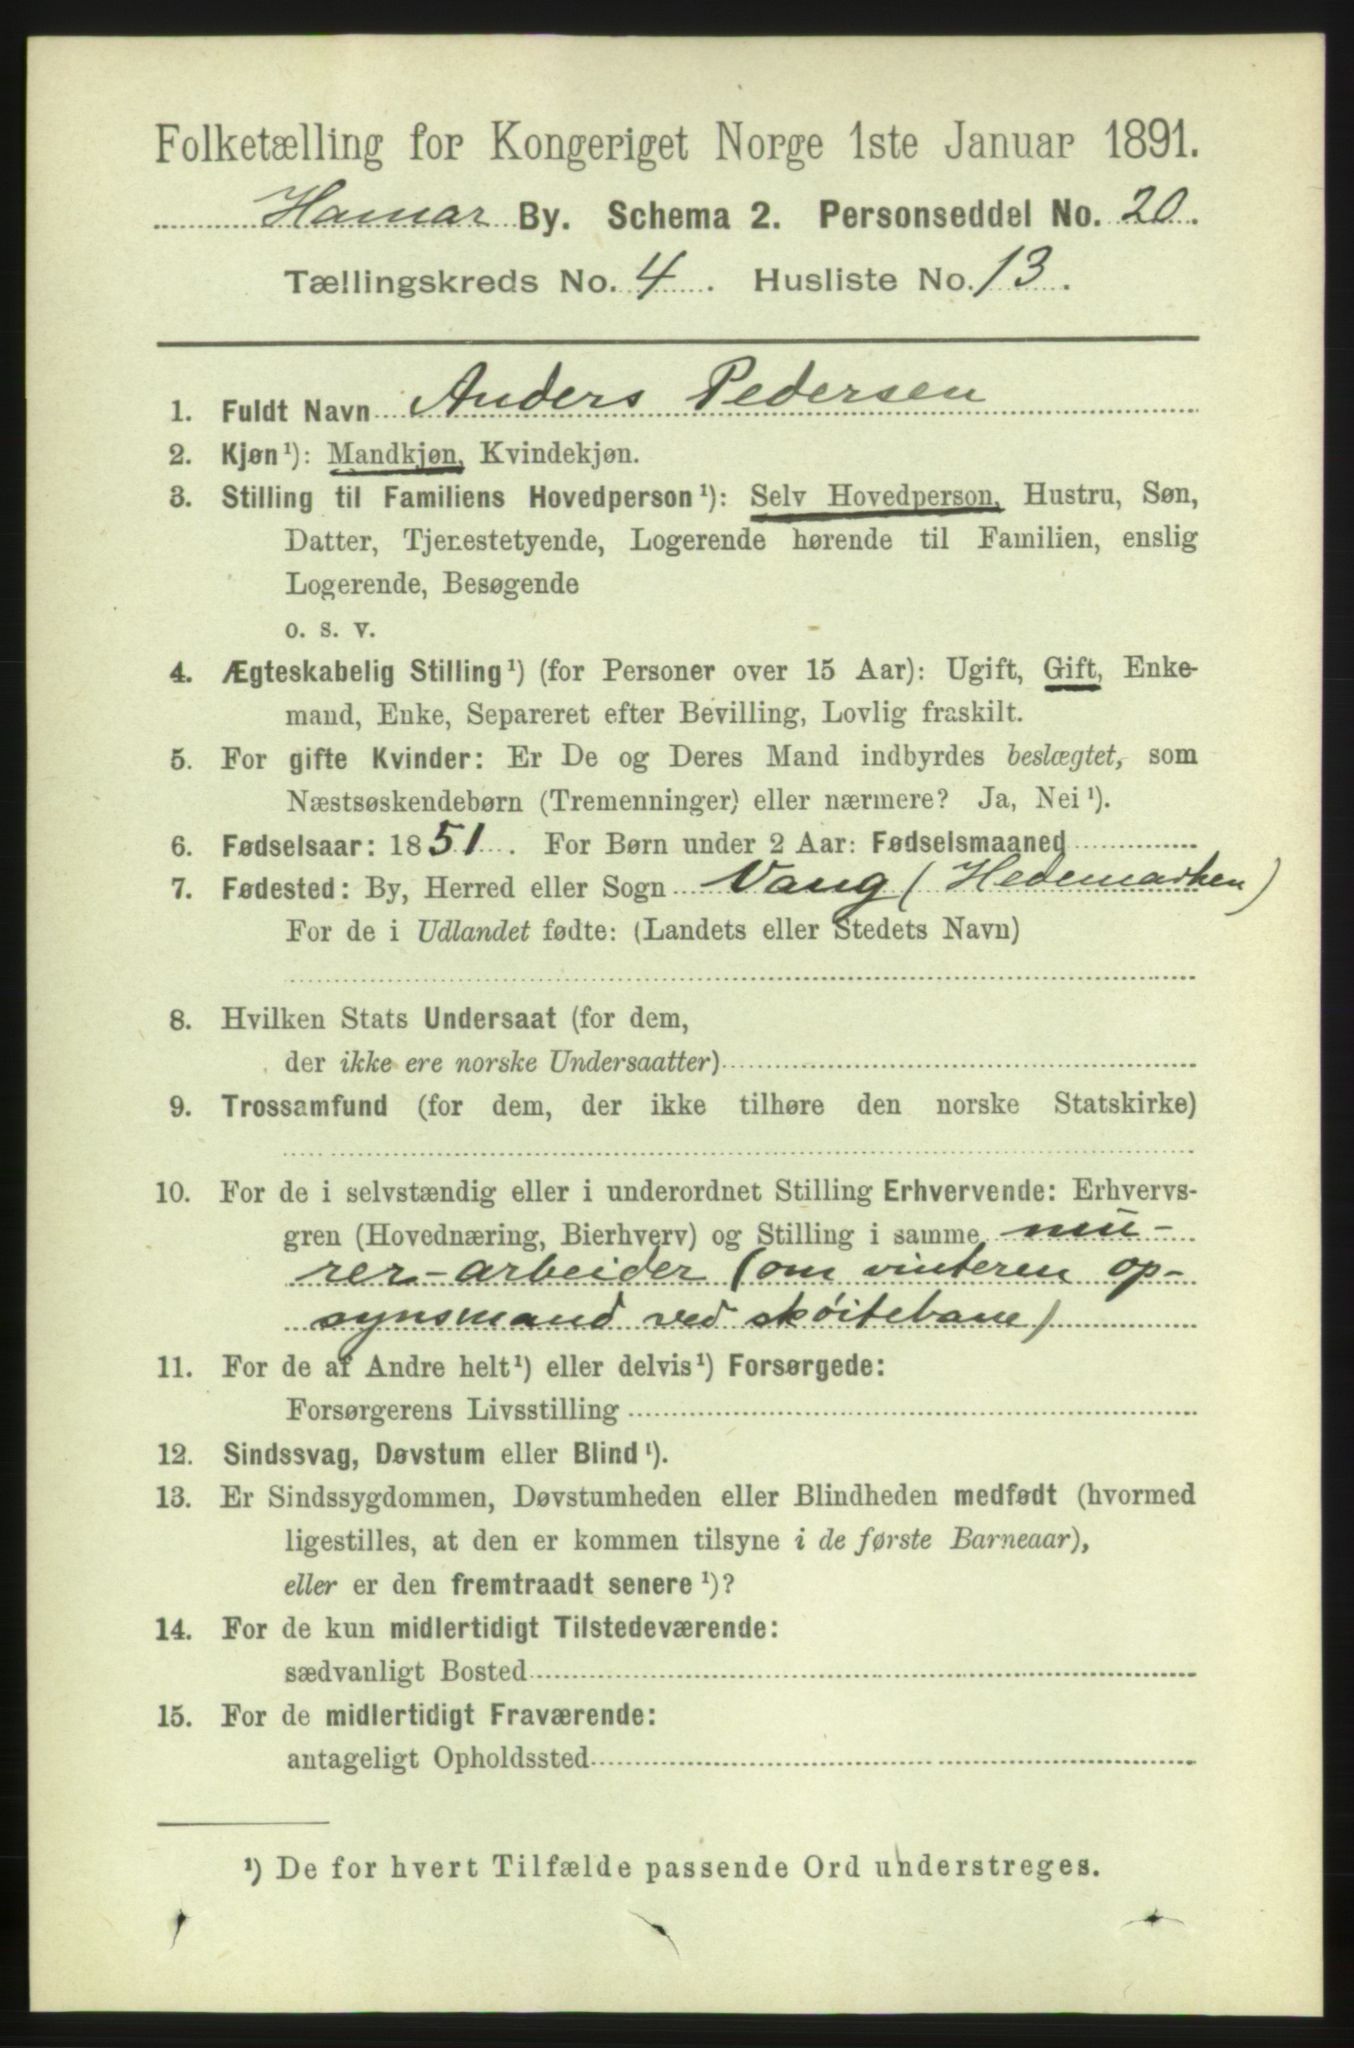 Folketælling for Kongeriget Norge 1ste Januar 1891.
Hamar By. Schema 2. Personseddel No. 20.
Tællingskreds No. 4. Husliste No. 13.
1. Fuldt Navn Anders Pedersen
2. Kjøn¹): Mandkjøn, Kvindekjøn.
3. Stilling til Familiens Hovedperson¹): Selv Hovedperson, Hustru, Søn,
Datter, Tjenestetyende, Logerende hørende til Familien, enslig
Logerende, Besøgende
o. s. v.
4. Ægteskabelig Stilling¹) (for Personer over 15 Aar): Ugift, Gift, Enke-
mand, Enke, Separeret efter Bevilling, Lovlig fraskilt.
5. For gifte Kvinder: Er De og Deres Mand indbyrdes beslægtet, som
Næstsøskendebørn (Tremenninger) eller nærmere? Ja, Nei¹).
6. Fødselsaar: 1851. For Børn under 2 Aar: Fødselsmaaned
7. Fødested: By, Herred eller Sogn Vang (Hedemarken)
For de i Udlandet fødte: (Landets eller Stedets Navn)
8. Hvilken Stats Undersaat (for dem,
der ikke ere norske Undersaatter)
9. Trossamfund (for dem, der ikke tilhøre den norske Statskirke)
10. For de i selvstændig eller i underordnet Stilling Erhvervende: Erhvervs-
gren (Hovednæring, Bierhverv) og Stilling i samme mu-
rer-arbeider (om vinteren op-
synsmand ved skøitebane)
11. For de af Andre helt¹) eller delvis¹) Forsørgede:
Forsørgerens Livsstilling
12. Sindssvag, Døvstum eller Blind¹).
13. Er Sindssygdommen, Døvstumheden eller Blindheden medfødt (hvormed
ligestilles, at den er kommen tilsyne i de første Barneaar),
eller er den fremtraadt senere¹)?
14. For de kun midlertidigt Tilstedeværende:
sædvanligt Bosted
15. For de midlertidigt Fraværende:
antageligt Opholdssted
¹) De for hvert Tilfælde passende Ord understreges.